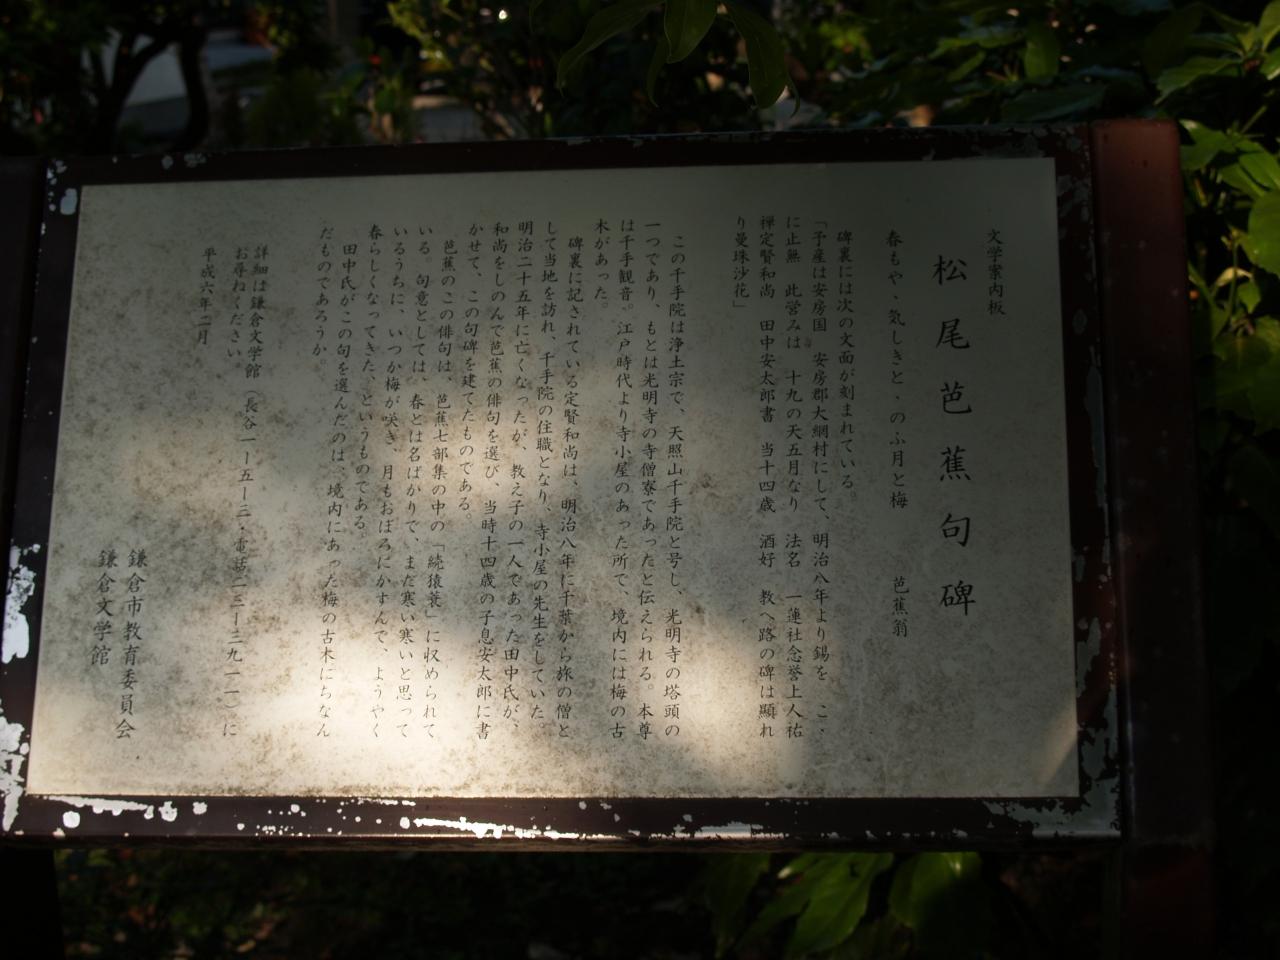 文学案内板
松尾芭蕉句碑
春もやゝ気しきとゝのふ月と梅　芭蕉翁
碑裏には次の文面が刻まれている。
「予産は安房国　安房郡大網村にして、明治八年より錫を　こゝ
に止無　此営みは　十九の天五月なり　法名　一蓮社念誉上人祐
禅定賢和尚　田中安太郎書　当十四歳　酒好　教へ路の碑は顕れ
り曼珠沙花」
この千手院は浄土宗で、天照山千手院と号し、光明寺の塔頭の
一つであり、もとは光明寺の寺僧寮であったと伝えられる。本尊
は千手観音。江戸時代より寺小屋のあった所で、境内には梅の古
木があった。
碑裏に記されている定賢和尚は、明治八年に千葉から旅の僧と
して当地を訪れ、千手院の住職となり、寺小屋の先生をしていた。
明治二十五年に亡くなったが、教え子の一人であった田中氏が、
和尚をしのんで芭蕉の俳句を選び、当時十四歳の子息安太郎に書
かせて、この句碑を建てたものである。
芭蕉のこの俳句は、芭蕉七部集の中の「続猿蓑」に収められて
いる。句意としては、春とは名ばかりで、まだ寒い寒いと思って
いるうちに、いつか梅が咲き、月もおぼろにかすんで、ようやく
春らしくなってきた、というものである。
田中氏がこの句を選んだのは、境内にあった梅の古木にちなん
だものであろうか。
詳細は鎌倉文学館（長谷一ー五ー三・電話二三ー三九一一）に
お尋ねください。
平成六年二月
鎌倉市教育委員会
鎌倉文学館